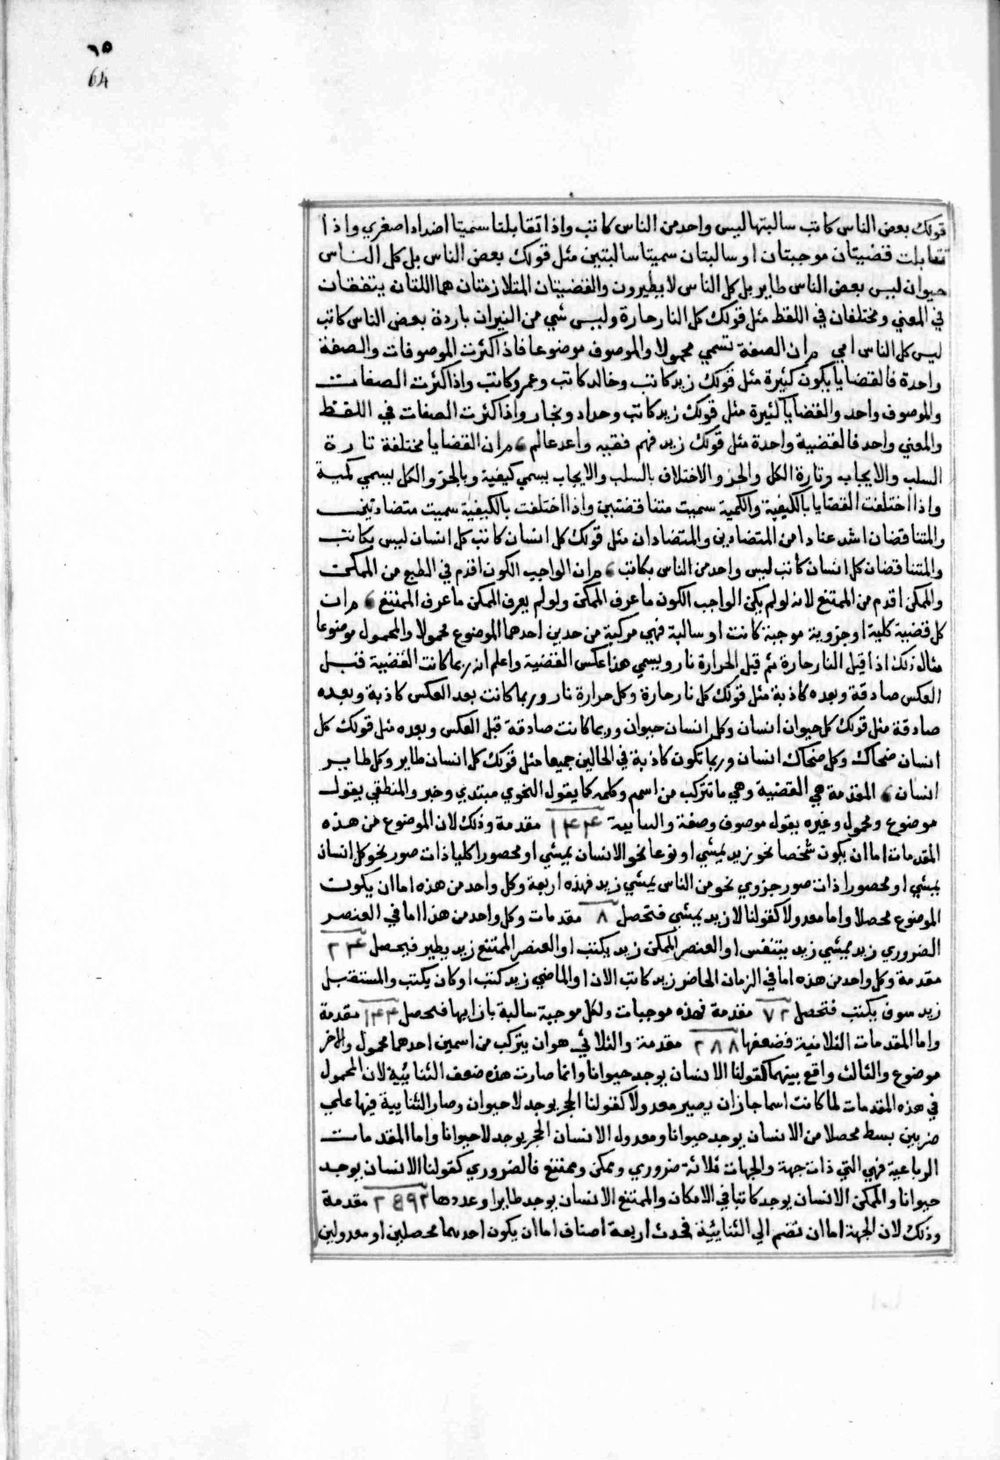 ٦٥
64
قولك بعض الناس كاتب سالبتها ليس واحد من الناس كاتب واذا تقابلتا سميتا اضدادا صغري واذا
تقابلت قضيتان موجبتان او سالبتان سميتا سالبتين مثل قولك بعض الناس بل كل الناس
حيوان ليس بعض الناس طاير بل كل الناس لا يطيرون والقضيتان المتلازمتان هما اللتان يتفقان
في المعني ومختلفان في اللفظ مثل قولك كل النار حارة وليس شي من النيران باردة بعض الناس كاتب
ليس كل الناس امي مران الصفة تسمي محمولا والموصوف موضوعا فاذ اكثرت الموصوفات والصفة
واحدة فالقضايا يكون كثيرة مثل قولك زيد كاتب وخالد كاتب وعمرو كاتب واذا كثرت الصفات
والموصوف واحد والقضايا كثيرة مثل قولك زيد كاتب وحداد ونجار واذا كثرت الصفات في اللفظ
والمعني واحد فالقضية واحدة مثل قولك زيد فهم فقيه واعد عالم مران القضايا مختلفة تارة
السلب والايجاب وتارة الكل والجزو الاختلاف بالسلب والايجاب يسمي كيفية وبالجزو الكل يسمي كمية
واذا اختلفت القضايا بالكيفية والكمية سميت متناقضتين واذا اختلفت بالكيفية سميت متضادتين
والمتناقضان اشد عنادا من المتضادين والمتضادان مثل قولك كل انسان كاتب كل انسان ليس بكاتب
والمتناقضان كل انسان كاتب ليس واحد من الناس بكاتب مران الواجب الكون اقدم في الطبع من الممكن
والممكن اقدم من الممتنع لانه لو لم يكن الواجب الكون ما عرف الممكن ولو لم يعرف الممكن ما عرف الممتنع مران
كل قضية كلية او جزوية موجبة كانت او سالبة فهي مركبة من حدين احدهما الموضوع محمولا والمحمول موضوعا
مثال ذلك اذا قيل النار حارة ثم قيل الحرارة نار ويسمي هذا عكس القضية واعلم انه ربما كانت القضية قبل
العكس صادقة وبعده كاذبة مثل قولك كل نار حارة وكل حرارة نار وربما كانت بعد العكس كاذبة وبعده
صادقة مثل قولك كل حيوان انسان وكل انسان حيوان وربما كانت صادقة قبل العكس وبعده مثل قولك كل
انسان ضحاك وكل ضحاك انسان وربما تكون كاذبة في الحالين جميعا مثل قولك كل انسان طاير وكل طاير
انسان المقدمة هي القضية وهي ما تتركب من اسم وكلمه كما يقول النحوي مبتدي وخبر والمنطقي يقول
موضوع ومحمول وغيره يقول موصوف وصفة والسابية ١٤٤ مقدمة وذلك لان الموضوع من هذه
المقدمات اما ان يكون شخصا نحو زيد يمشي او نوعا نحو الانسان يمشي او محصورا كليا ذات صور نحو كل انسان
يمشي او محصورا ذات صور جزوي نحو من الناس يمشي زيد فهذه اربعة وكل واحد من هذه اما ان يكون
الموضوع محصلا واما معدولا كقولنا لا زيد يمشي فتحصل ٨ مقدمات وكل واحد من هذا اما في العنصر
الضروري زيد يمشي زيد يتنفس او العنصر الممكن زيد يكتب او العنصر الممتنع زيد يطير فيحصل ٢٤
مقدمة وكل واحد من هذه اما في الزمان الحاضر زيد كاتب الان او الماضي زيد كتب او كان يكتب والمستقبل
زيد سوف يكتب فتحصل ٧٢ مقدمة فهذه موجبات ولكل موجبة سالبة بازايها فتحصل ١٤٤ مقدمة
واما المقدمات الثلاثية فضعفها ٢٨٨ مقدمة والثلاثي هو ان يتركب من اسمين احدهما محمول والاخر
موضوع والثالث واقع بينهما كقولنا الانسان يوجد حيوانا وانما صارت هذه ضعف الثنائية لان المحمول
في هذه المقدمات لما كانت اسما جاز ان يصير معدولا كقولنا الحجر يوجد لا حيوان وصار الثنايية فيها علي
ضربين بسط محصلا من الانسان يوجد حيوانا ومعدول الانسان الحجر يوجد لا حيوانا واما المقدمات
الرباعية فهي التي ذات جهة والجهات ثلاثة ضروري وممكن وممتنع فالضروري كقولنا الانسان يوجد
حيوانا والممكن الانسان يوجد كاتبا في الامكان والممتنع الانسان يوجد طايرا وعددها ٢٥٩٢ مقدمة
وذلك لان الجهة اما ان تضم الي الثنايية فحدث اربعة اصناف اما ان يكون احدهما محصلين او معدولين